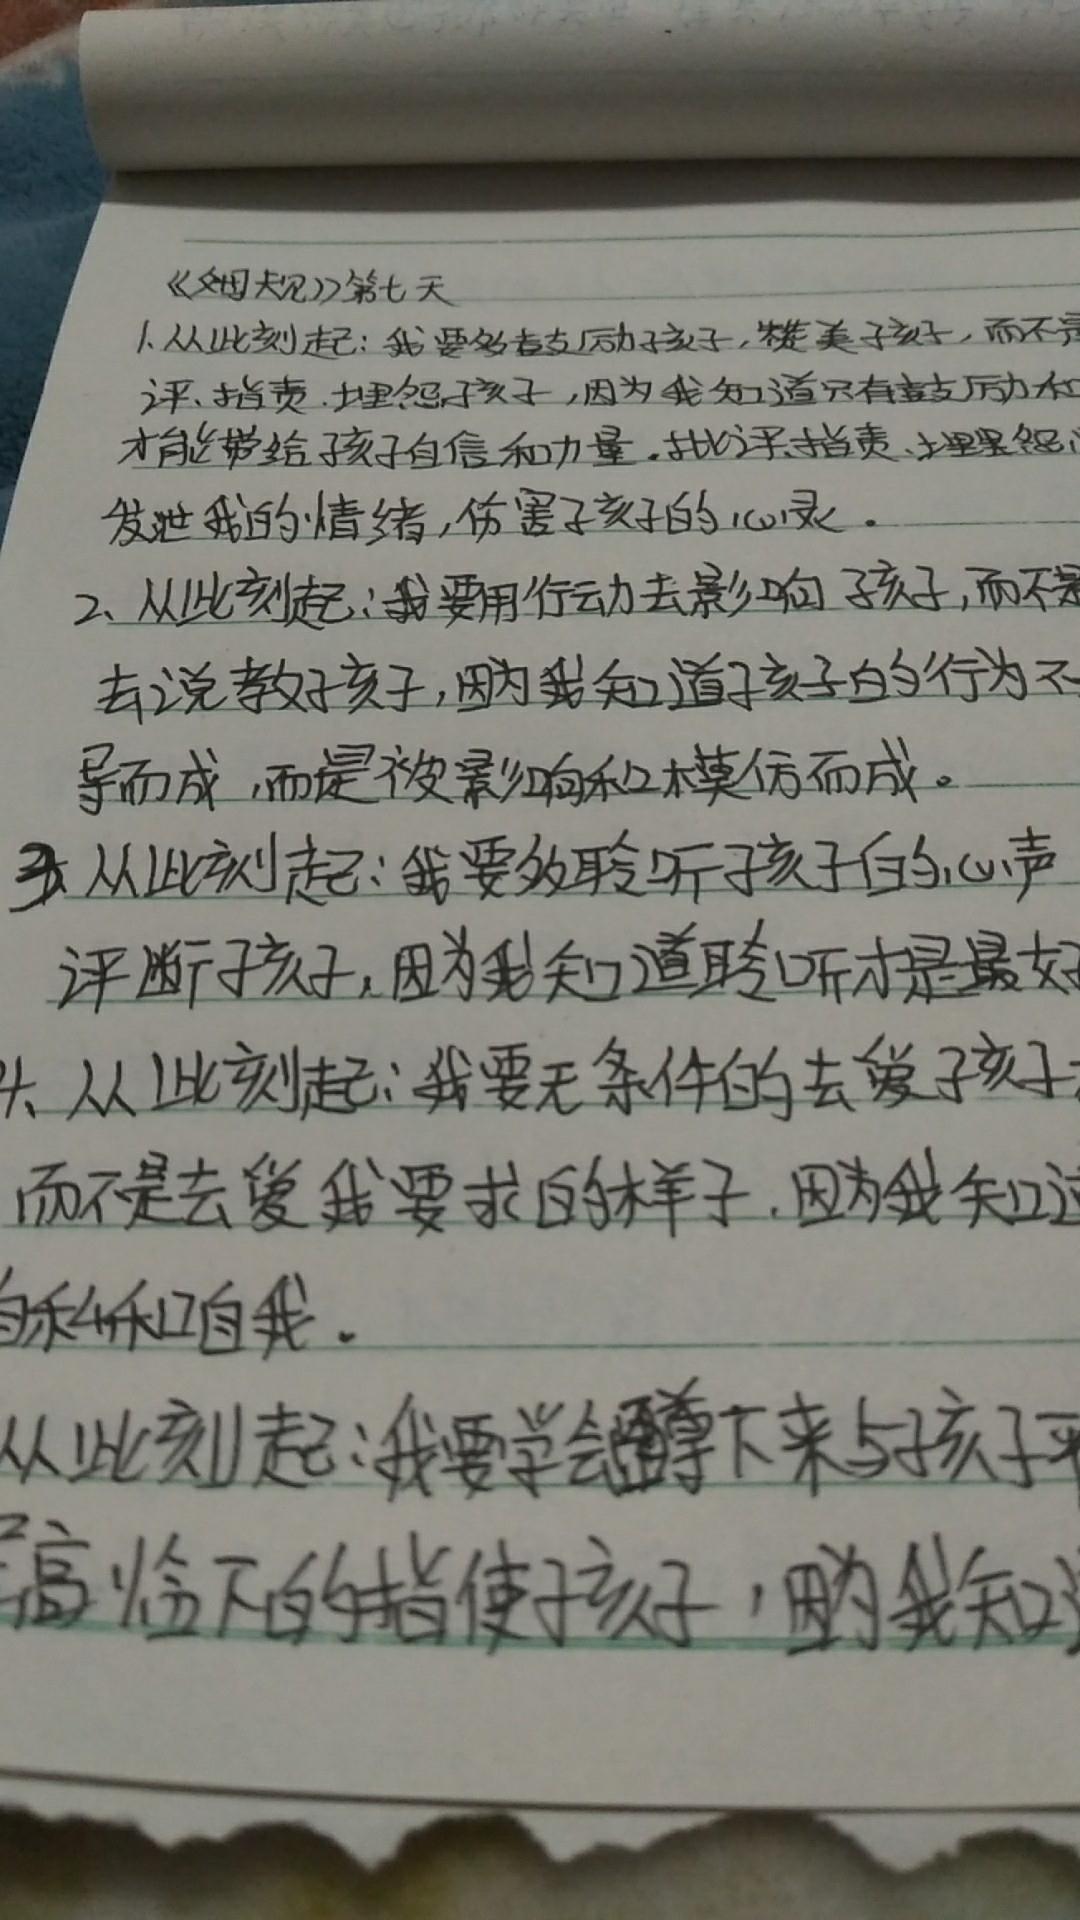 《父母规》第七天
1、从此刻起：我要多鼓励孩子，赞美孩子，而不是
评、指责、埋怨孩子，因为我知道只有鼓励和
才能带给孩子自信和力量。批评、指责、埋怨
发泄我的情绪，伤害孩子的心灵。
2、从此刻起：我要用行动去影响孩子，而不是
去说教孩子，因为我知道孩子的行为不
导而成，而是被影响和模仿而成。
3、从此刻起：我要多聆听孩子的心声
评断孩子，因为我知道聆听才是最好
4、从此刻起：我要无条件的去爱孩子
而不是去爱我要求的样子，因为我知道
自私和自我。
从此刻起：我要学会蹲下来与孩子平
高 下的指使孩子，因为我知道